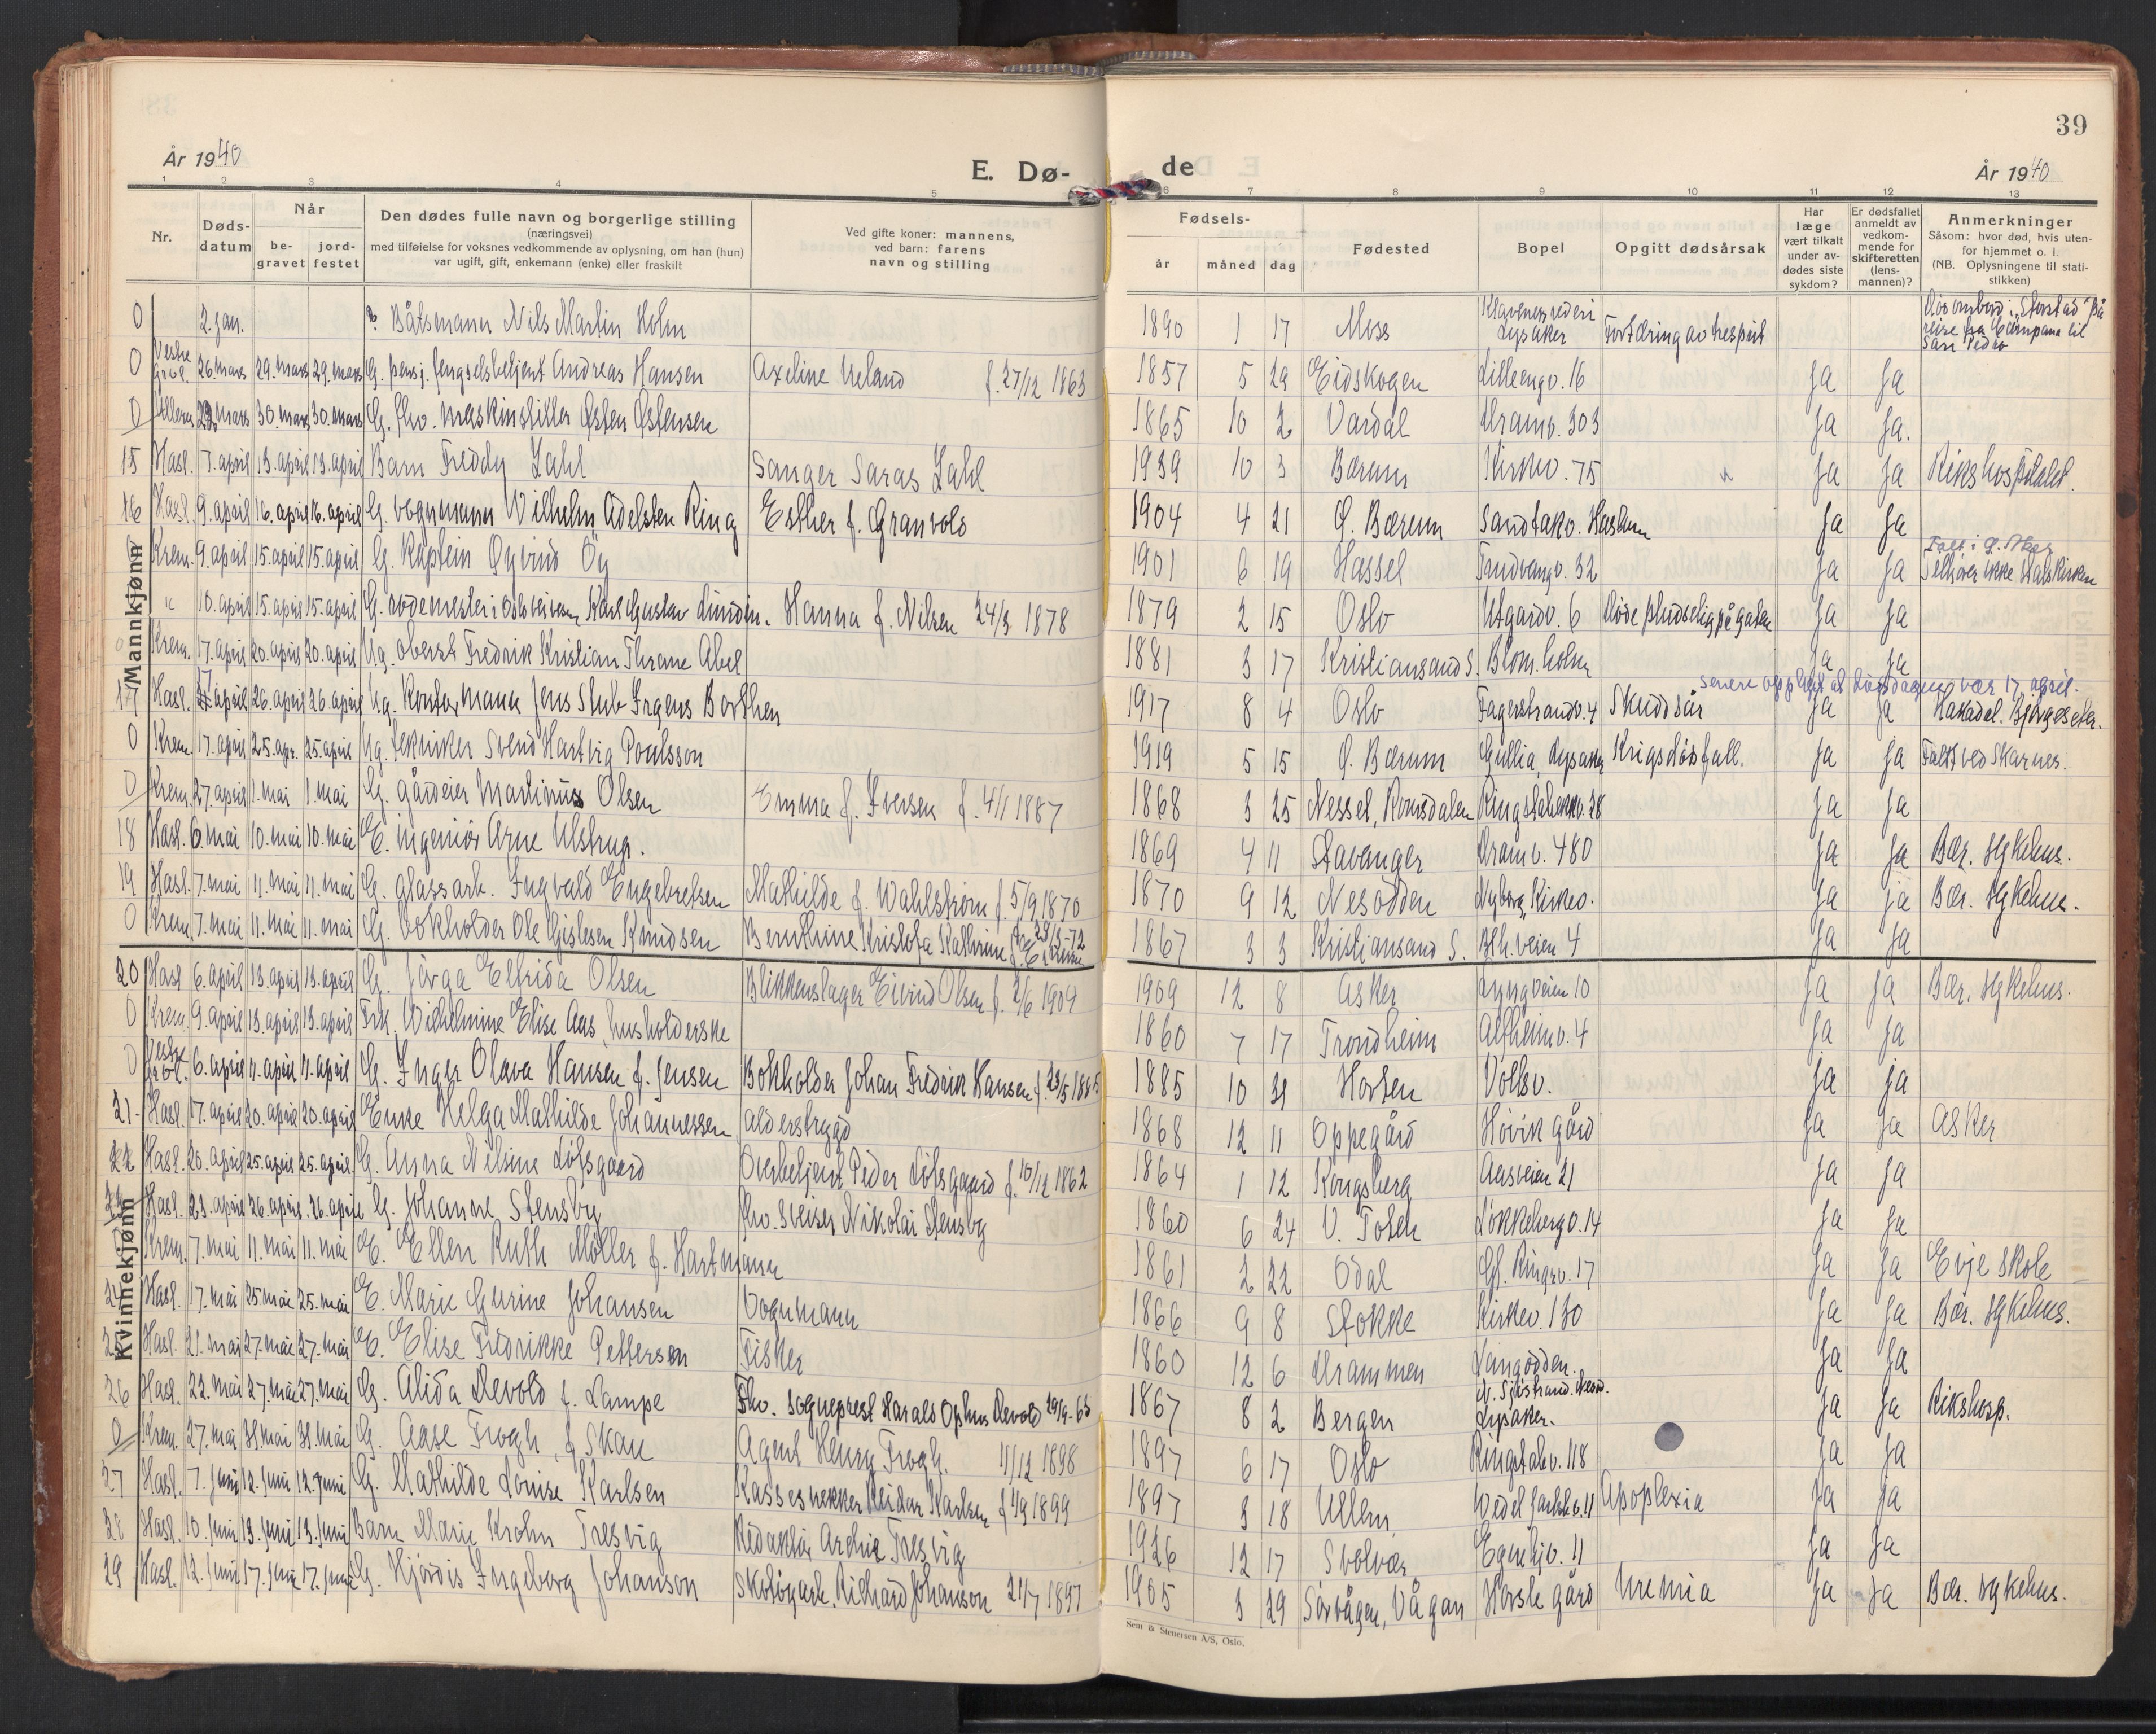 39
År 1940
E. Dø- de
År 1940
1 2 3 4 5 6 7 8 9 10 11 12 13
Nr.
Døds-
datum
Når
be-
gravet
jord-
festet
Den dødes fulle navn og borgerlige stilling
(næringsvei)
med tilføielse for voksnes vedkommende av oplysning, om han (hun)
var ugift, gift, enkemann (enke) eller fraskilt
Ved gifte koner: mannens,
ved barn: farens
navn og stilling
Fødsels-
år måned dag
Fødested
Bopel
Opgitt dødsårsak
Har
læge
vært tilkalt
under av-
dødes siste
sykdom?
Er dødsfallet
anmeldt av
vedkom-
mende for
skifteretten
(lens-
mannen)?
Anmerkninger
Såsom: hvor død, hvis uten-
for hjemmet o. l.
(NB. Oplysningene til stati-
stikken)
Mannkjønn
0 2. jan. Båtsmann Nils Martin Holm 1890 1 17 Moss Klavenes rederi Lysaker Død ombord i "Storstad" på reise fra til San Pedro
0 Vestre grav. 26. mars 29. mars 29. mars G. pensj. fengselsbetjent Andreas Hansen Axeline Ueland f. 27/12 1863 1857 5 29 Eidskogen Lilleengv. 16 Ja Ja
0 Ullern mars 30. mars 30. mars G. fhv. maskinstiller Østen Østensen 1865 10 2 Vardal Dramv. 303 Ja Ja.
15 Hasl. 7. april 13. april 13. april Barn Freddy Zahl Sanger Saras Zahl 1939 10 3 Bærum Kirkev. 75 Ja Ja Rikshospitalet.
16 Hasl. 9. april 16. april 16. april G. vognmann Wilhelm Adelsten Ring Esther f. Granvold 1904 4 21 Ø. Bærum Sandtakv. Haslum Ja Ja
0 Krem. 9. april 15. april 15. april G. Kaptein Øyvind Öy 1901 6 19 Hassel Trudvangv. 32 Ja Ja Tilhører ikke statskirken
0 " 10. april 15. april 15. april G. rodemester i Oslo veivesen Karl Gustav Lundin. Hanna f. Nilsen 24/3 1878 1879 2 15 Oslo Utgardv. 6 Døde pludselig på gaten Ja Ja
0 Krem. 17. april 20. april 20. april Ug. oberst Fredrik Kristian Thrane Abel 1881 3 17 Kristiansand S. Blom.holm Ja Ja
senere opplyst at dødsdagen var 17 april.
17 Hasl. 17 april 26. april 26. april Ug. Kontormann Jens Stub Irgens Borthen 1917 8 4 Oslo Fagerstrandv. 4 Skuddsår Ja Ja Hakadal. Bjørgeseter.
0 Krem. 17. april 25. apr. 25. april Ug. tekniker Svend Hartvig Poulsson 1919 5 15 Ø. Bærum Gullia, Lysaker Krigsdødsfall. Ja Ja Falt ved Skarnes.
0 Krem. 27. april 1. mai 1. mai G. gårdeier Martinus Olsen Emma f. Iversen f. 4/1 1887 1868 3 25 Nesset, Romsdalen Ringstabekkv. 28 Ja Ja
18 Hasl. 6. mai 10. mai 10. mai E. ingeniør Arne Ulstrup. 1869 4 11 Stavanger Dramv. 480 Ja Ja Bær. sykehus.
19 Hasl. 7. mai 11. mai 11. mai G. glassarb. Ingvald Engebretsen Mathilde f. Wahlstrøm f. 5/9 1870 1870 9 12 Nesodden Nyborg, Kirkev. Ja ja Bær. sykehus.
0 Krem. 7. mai 11. mai 11. mai G. bokholder Ole Gislesen Knudsen Bernthine Kristofa Kathrine 1867 3 3 Kristiansand S. Blh. veien 4 Ja Ja
Kvinnekjønn
20 Hasl 6. april 13. april 13. april G. Jørga Elfrida Olsen Blikkenslager Eivind Olsen f. 2/6 1909 1909 12 8 Asker Lyngveien 10 Ja Ja Bær. sykehus.
0 Krem. 9. april 13. april 13. april Frk. Wilhelmine Elise Aas, husholderske 1860 7 17 Trondheim Alfheimv. 4 Ja Ja
0 Vestre grav. 6. april 11. april 11. april G. Inger Olava Hansen f. Jensen Bokholder Johan Fredrik Hansen f. 23/5 1885 1885 10 31 Horten Vollsv. Ja ja
21 Hasl. 17. april 20. april 20. april Enke Helga Mathilde Johannessen, alderstrygd 1868 12 11 Oppegård Høvik gård Ja Ja Asker
22 Hasl. 20. april 25. april 25. april G. Anna Nilsine Lofsgaard Overbetjent Peder Lofsgaard f. 10/12 1862 1864 1 12 Kongsberg Aasveien 21 Ja Ja
23 Hasl. 23. april 26. april 26. april G. Johanne Stensby fhv. sveiser Nikolai Stensby 1860 6 24 V. Toten Løkkebergv. 14 Ja Ja
0 Krem. 7. mai 11. mai 11. mai E. Ellen Ruth Møller f. Hartmann 1861 2 22 Odal Gl. Ringv. 17 Ja Ja Evje skole
24 Hasl. 17. mai 25. mai 25. mai E. Marie Gurine Johansen Vognmann 1866 9 8 Stokke Kirkev. 130 Ja Ja Bær. sykehus.
25 Hasl. 21. mai 27. mai 27. mai E. Elise Fredrikke Pettersen Fisker 1860 12 6 Drammen Langodden. Ja Ja
26 Hasl. 22. mai 27. mai 27. mai G. Alida Devold f. Lampe Fhv. sogneprest Harald Ophus Devold 29/9-63 1867 8 2 Bergen Lysaker. Ja Ja Rikshosp.
0 Krem. 27. mai 31. mai 31. mai G. Aase Frogh, f. Skau Agent Henry Frogh. 11/12 1898 1897 6 17 Oslo Ringstabv. 118 Ja Ja
27 Hasl. 7. juni 12. juni 12. juni G. Mathilde Louise Karlsen Kassesnekker Reidar Karlsen f. 1/9 1899 1897 3 18 Ullern Wedel Jarlsbv. 11 Apoplexia Ja Ja
28 Hasl. 10. juni 13. juni 13. juni Barn Marie Krohn Tresvig Redaktør Archie Tresvig 1926 12 17 Svolvær Egnehjv. 11 Ja Ja
29 Hasl. 12. juni 17. juni 17. juni G. Hjørdis Ingeborg Johanson Skotøyarb. Richard Johanson 21/7 1897 1905 3 29 Sørvågen, Vågan Horsle gård Uremia Ja Ja Bær. sykehus.
Sem & Stenersen A/S, Oslo.